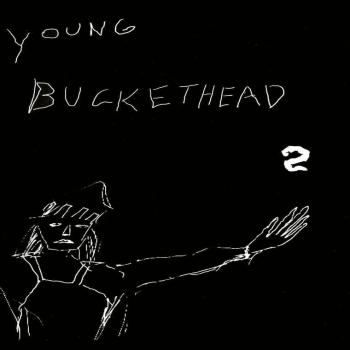 YOUNG
BUCKETHEAD
2